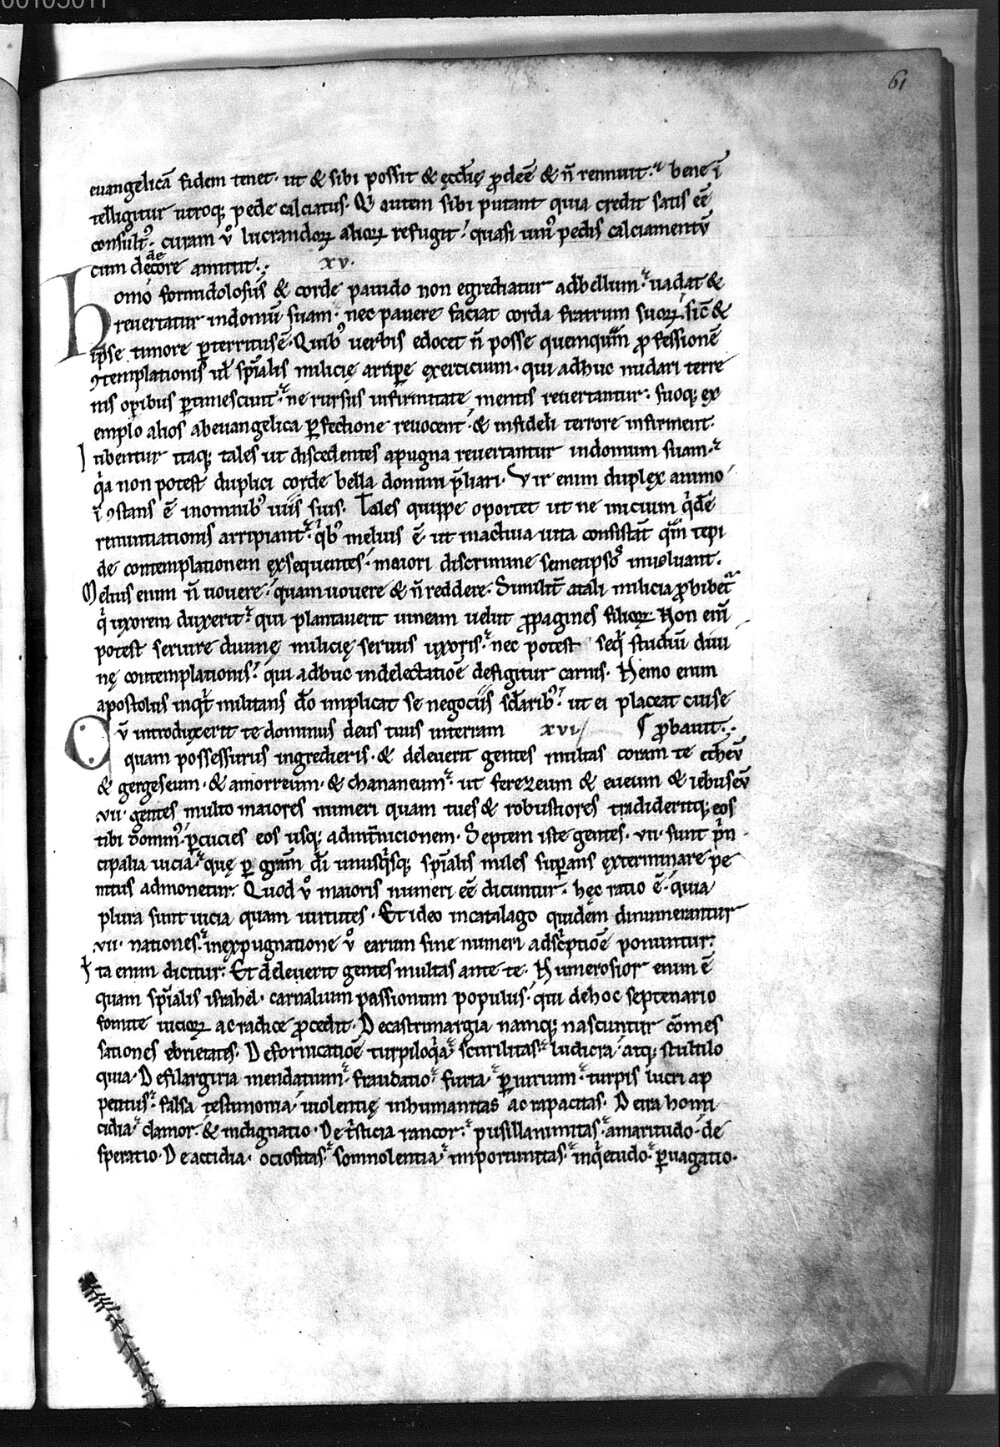 61
euangelicā fidem tenet· ut & sibi possit & ęcclīę ꝓdeē & n̄ rennuit· bene ī
telligitur utroq; pede calciatus· Qͥ autem sibi putant quia credit satis eē
consultū· curam ū lucrandoꝝ alioꝝ refugit· quasi uniꝰ pedis calciamentū
cum dedecore amittit·; xv·
homo formidolosus & corde pauido non egrediatur ad bellum· uadat &
reuertatur in domū suam· nec pauere faciat corda fratrum suoꝝ· sic̄ &
ipse timore ꝑterritus ē· Quibꝰ uerbis edocet n̄ posse quemquā ꝓfessionē
ꝯtemplationis uł sp̄ialis milicię arripe exercicium· qui adhuc nudari terre
nis opibus ꝑtimescunt· ne rursus infirmitate mentis reuertantur· suoq; ex
emplo alios ab euangelica ꝑfectione reuocent· & infideli terrore infirment·
Iubentur itaq; tales ut discedentes a pugna reuertantur in domum suam·
qͣa non potest duplici corde bella domini p̄liari· Vir enim duplex animo
īꝯstans ē in omnibꝰ uiis suis· Tales quippe oportet ut ne inicium qͥdē
renuntiationis arripiant· qͥbꝰ melius ē ut in actiua uita consistāt qͣ̄m tepi
de contemplationem exsequentes· maiori discrimine semetipsoſ inuoluant·
Melius enim n̄ uouere· quam uouere & n̄ reddere· Similit̄ a tali milicia ꝓhibet᷑
qͥ uxorem duxerit· qui plantauerit uineam uelut ꝓpagines filioꝝ· Non enī
potest seruire diuinę milicię seruus uxoris· nec potest seqͥ studiū diui
nę contemplationis· qui adhuc in delectatioē defigitur carnis· Nemo enim
apostolus inqͥt militans dō implicat se negociis scłaribꝰ· ut ei placeat cui se
Cū introduxerit te dominus deus tuus in terram xvi ¶ ꝓbauit·;
quam possessurus ingredieris· & deleuerit gentes multas coram te etheū
& gergeseum· & amorreum· & chananeum· ut ferezeum & eueum & iebuseū
·vii· gentes multo maiores numeri quam tu es & robustiores tradideritq; eos
tibi dominꝰ· ꝑcucies eos usq; ad int̄nicionem· Septem iste gentes· vii· sunt pͥn
cipalia uicia· quę ꝑ grām dī unusqͥsq; sp̄ialis miles suꝑans exterminare pe
nitus admonetur· Quod ū maioris numeri eē dicuntur· hęc ratio ē· quia
plura sunt uicia quam uirtutes· Et ideo in catalago quidem dinumerantur
·vii· nationes· in expugnatione ū earum sine numeri adscͥptioē ponuntur·
Ita enim dicitur· Et deleuerit gentes multas ante te· Numerosior enim ē
quam sp̄ialis israhel· carnalium passionum populus· qui de hoc septenario
fomite uicioꝝ ac radice ꝓcedit· De castrimargia namq; nascuntur cōmes
sationes ebrietatis· De fornicatioē turpiloqͥa· scurilitas· ludicria· atq; stultilo
quia· De filargiria mendatium· fraudatio· furta· ꝑiurium· turpis lucri ap
petitus· falsa testimonia· uiolentię inhumanitas ac rapacitas· De ira homi
cidia· clamor· & indignatio· De tͥsticia rancor· pusillanimitas· amaritudo· de
speratio· De accidia· ociositas· somnolentia· importunitas· inqͥetudo· ꝑuagatio·